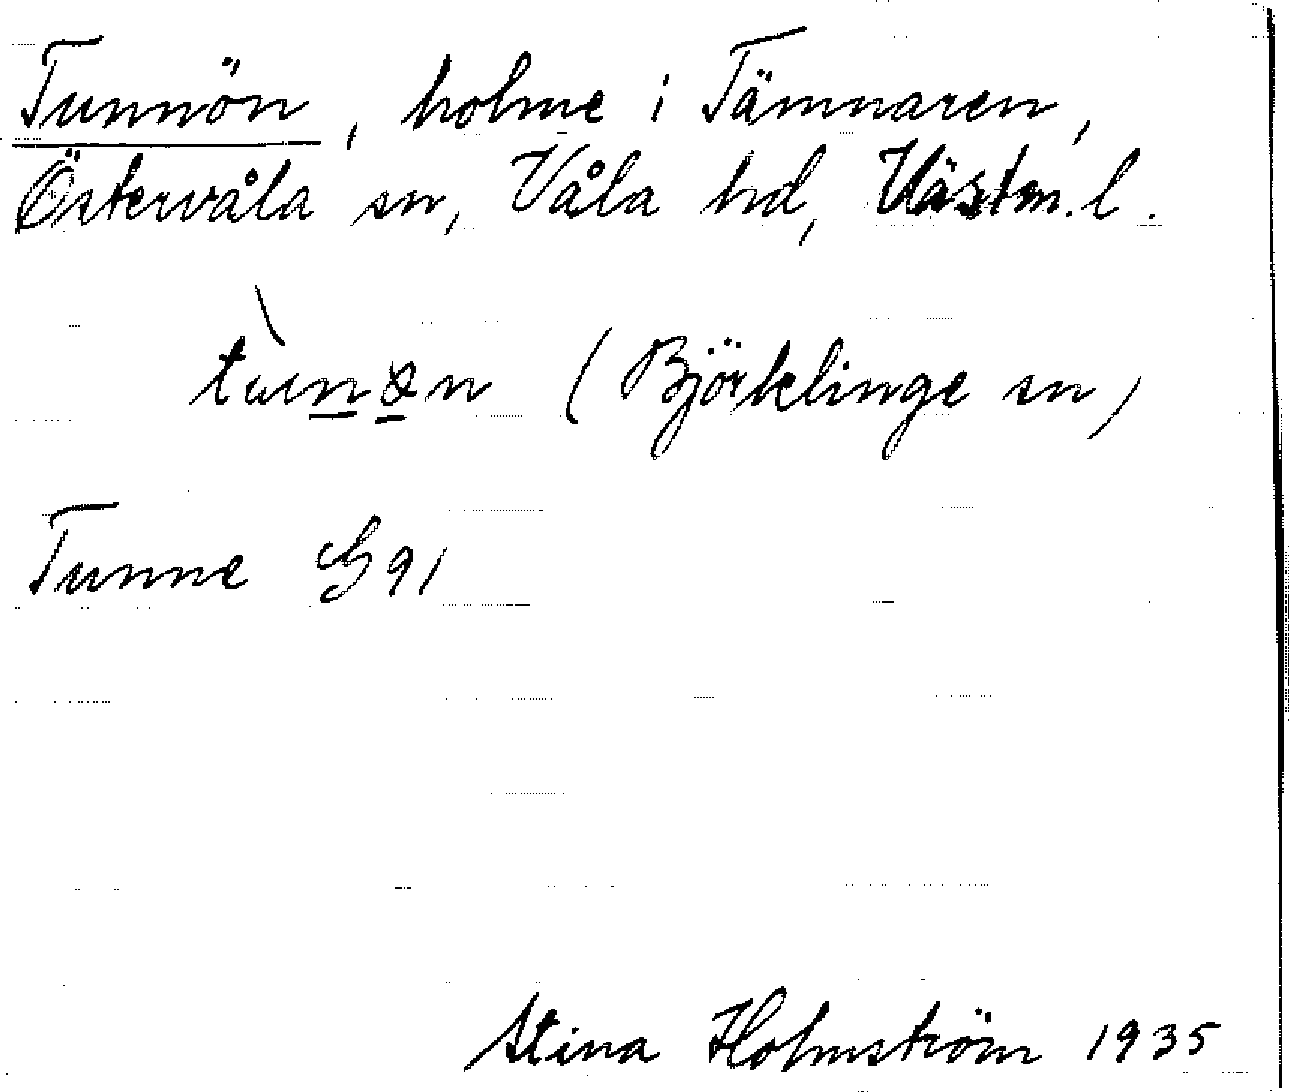 Tunnön, holme i Tämnaren,
Östervåla sn, Våla hd, Västm. l.
(Björklinge sn)
Tunne G 91
Stina Holmström 1935